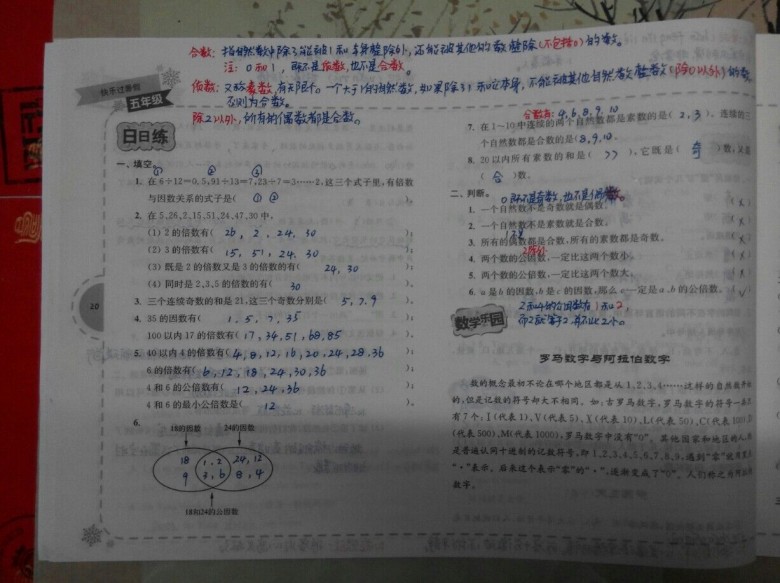 合数：指自然数中除了能被1和本身整除外，还能被其他的数整除(不包括0)的数。
注：0和1，既不是质数，也不是合数。
质数：又称素数，有无限个。一个大于1的自然数，如果除了1和它本身，不能被其他自然数整除(除0以外)的数，
否则为合数。
除2以外，所有的偶数都是合数。
快乐过暑假
五年级
日日练
一、填空。
① ② ③
1. 在6÷12=0.5,91÷13=7,23÷7=3……2,这三个式子里,有倍数
与因数关系的式子是( ② )。
2. 在5,26,2,15,51,24,47,30中,
(1) 2的倍数有( 26, 2, 24, 30 )。
(2) 3的倍数有( 15, 51, 24, 30 )。
(3) 既是2的倍数又是3的倍数的有( 24, 30 )。
(4) 同时是2,3,5的倍数的有( 30 )。
3. 三个连续奇数的和是21,这三个奇数分别是( 5, 7, 9 )。
4. 35的因数有( 1, 5, 7, 35 )。
100以内17的倍数有( 17, 34, 51, 68, 85 )。
5. 40以内4的倍数有( 4, 8, 12, 16, 20, 24, 28, 36 )。
6的倍数有( 6, 12, 18, 24, 30, 36 )。
4和6的公倍数有( 12, 24, 36 )。
4和6的最小公倍数是( 12 )。
6.
18的因数 24的因数
18 1, 2 24, 12
9 3, 6 8, 4
18和24的公因数
20
合数有: 4, 6, 8, 9, 10
7. 在1~10中连续的两个自然数都是素数的是( 2, 3 )。连续的三
个自然数都是合数的是( 8, 9, 10
8. 20以内所有素数的和是( 77 ),它既是( 奇 )数,又是
( 合 )数。
二、判断。
0既不是奇数,也不是偶数。
1. 一个自然数不是奇数就是偶数。 ( )
2. 一个自然数不是素数就是合数。 ( × )
3. 所有的偶数都是合数,所有的素数都是奇数。 ( × )
2除外
4. 两个数的公因数,一定比这两个数小。 ( × )
5. 两个数的公倍数,一定比这两个数大。 ( × )
6. a是b的因数,b是c的因数,那么c一定是a、b的公倍数。 ( √ )
2和4的公因数有1和2,
而2就等于2,并不比2小。
数学乐园
罗马数字与阿拉伯数字
数的概念最初不论在哪个地区都是从1,2,3,4……这样的自然数开始
的,但是记数的符号却大不相同。如:古罗马数字,罗马数字的符号一共只
有7个:I(代表1)、V(代表5)、X(代表10)、L(代表50)、C(代表100)、D
(代表500)、M(代表1000),罗马数字中没有“0”。其他国家和地区的人
是普遍认同十进制的记数符号,即1,2,3,4,5,6,7,8,9,遇到“零”就用黑点
“·”表示,后来这个表示“零”的“·”,逐渐变成了“0”。人们称之为阿拉伯
数字。